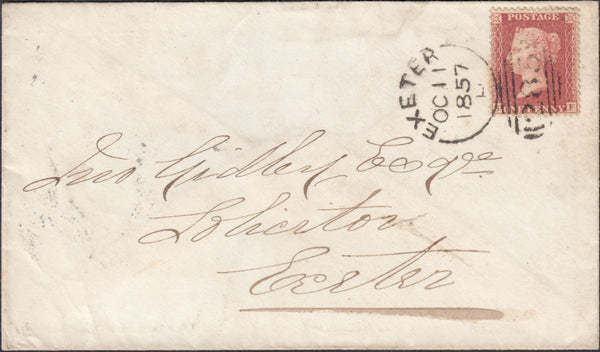 POSTAGE
ONE PENNY
F
EXETER
OC 11
1857
E
Jno Gidley Esqre
Solicitor
Exeter